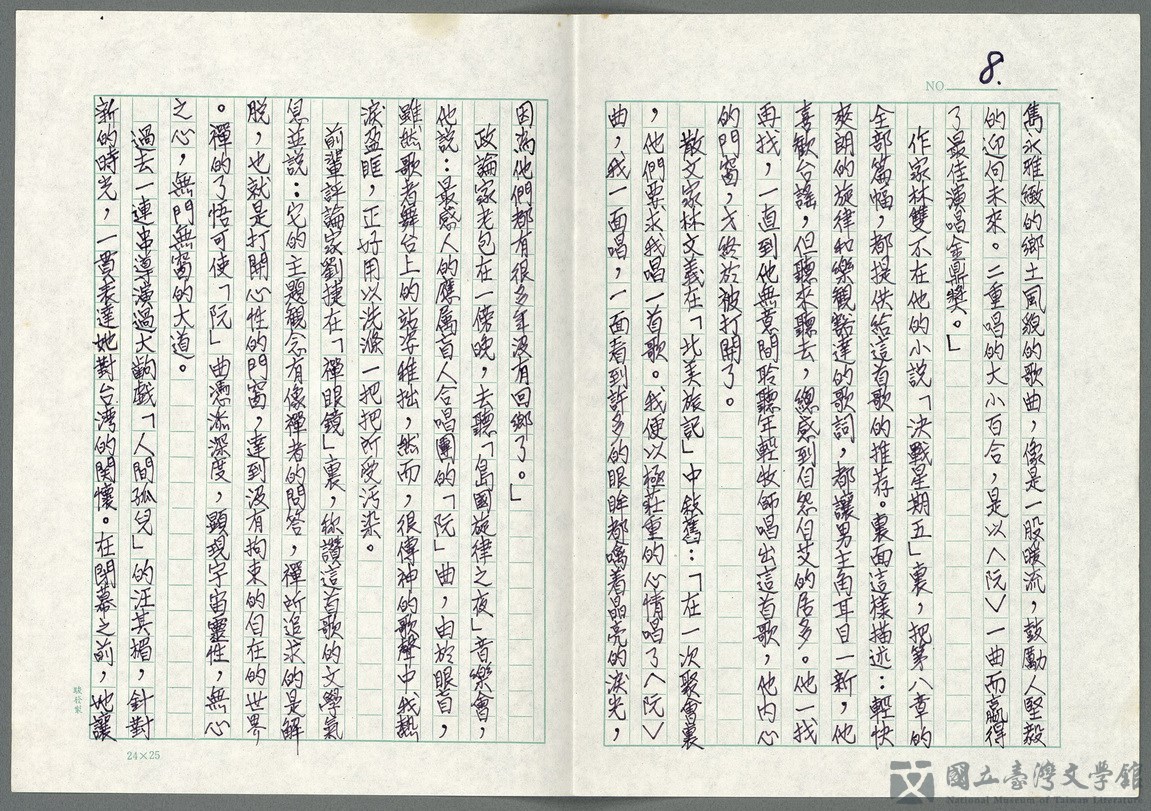 NO 8.
雋永雅緻的鄉土風貌的歌曲，像是一股暖流，鼓勵人堅毅
的迎向未來。二重唱的大小百合，是以〈阮〉一曲而贏得
了最佳演唱金鼎獎。」
作家林雙不在他的小說「決戰星期五」裏，把第八章的
全部篇幅，都提供給這首歌的推荐。裏面這樣描述：輕快
爽朗的旋律和樂観豁達的歌詞，都讓男主角耳目一新，他
喜歡台謠，但聽來聽去，總感到自怨自艾的居多。他一找
再找，一直到他無意間聆聽年輕牧師唱出這首歌，他內心
的門窗，才終於被打開了。
散文家林文義在「北美旅記」中敍舊：「在一次聚會裏
，他們要求我唱一首歌。我便以極莊重的心情唱了〈阮〉
曲，我一面唱，一面看到許多的眼眸都噙着晶亮的淚光，
因為他們都有很多年沒有回鄉了。」
政論家老包在一傍晚，去聽「島國旋律之夜」音樂會，
他說：最感人的應屬盲人合唱團的「阮」曲，由於眼盲，
雖然歌者舞台上的站姿稚拙，然而，很傳神的歌聲中我熱
淚盈眶，正好用以洗滌一把把所受污染。
前輩評論家劉捷在「禪眼鏡」裏，稱讚這首歌的文學氣
息並說：它的主題観念有像禪者的問答，禪所追求的是解
脫，也就是打開心性的門窗，達到沒有拘束的自在的世界
。禪的了悟可使「阮」曲憑添深度，顯現宇宙靈性，無心
之心，無門無窗的大道。
過去一連串導演過大齣戲「人間孤兒」的汪其楣，針對
新的時光，一貫表達她對台灣的関懷。在閉幕之前，她讓
24×25
國立臺灣文學館
National Museum of Taiwan Literature